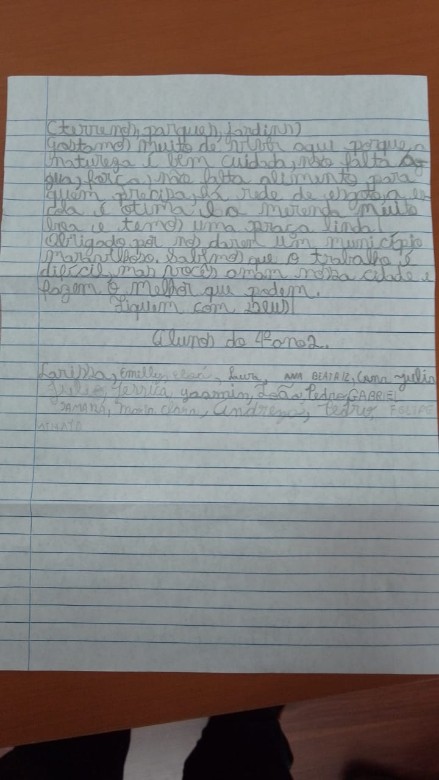 (terrenos, parques, jardins)
Gostamos muito de viver aqui porque a
natureza é bem cuidada, não falta á-
gua, força, não falta alimento para
quem precisa, há rede de esgoto a es-
cola é ótima e a merenda muito
boa e temos uma praça linda!
Obrigado por nos darem um município
maravilhoso. Sabemos que o trabalho é
difícil, mas vocês amam nossa cidade e
fazem o melhor que podem.
Fiquem com Deus!
Alunos do 4º ano 2.
Larissa, Emelly, Laura, ANA BEATRIZ,
yasmin, João Pedro, GABRIEL
Maria Clara, Andreza, Pedro, FELIPE